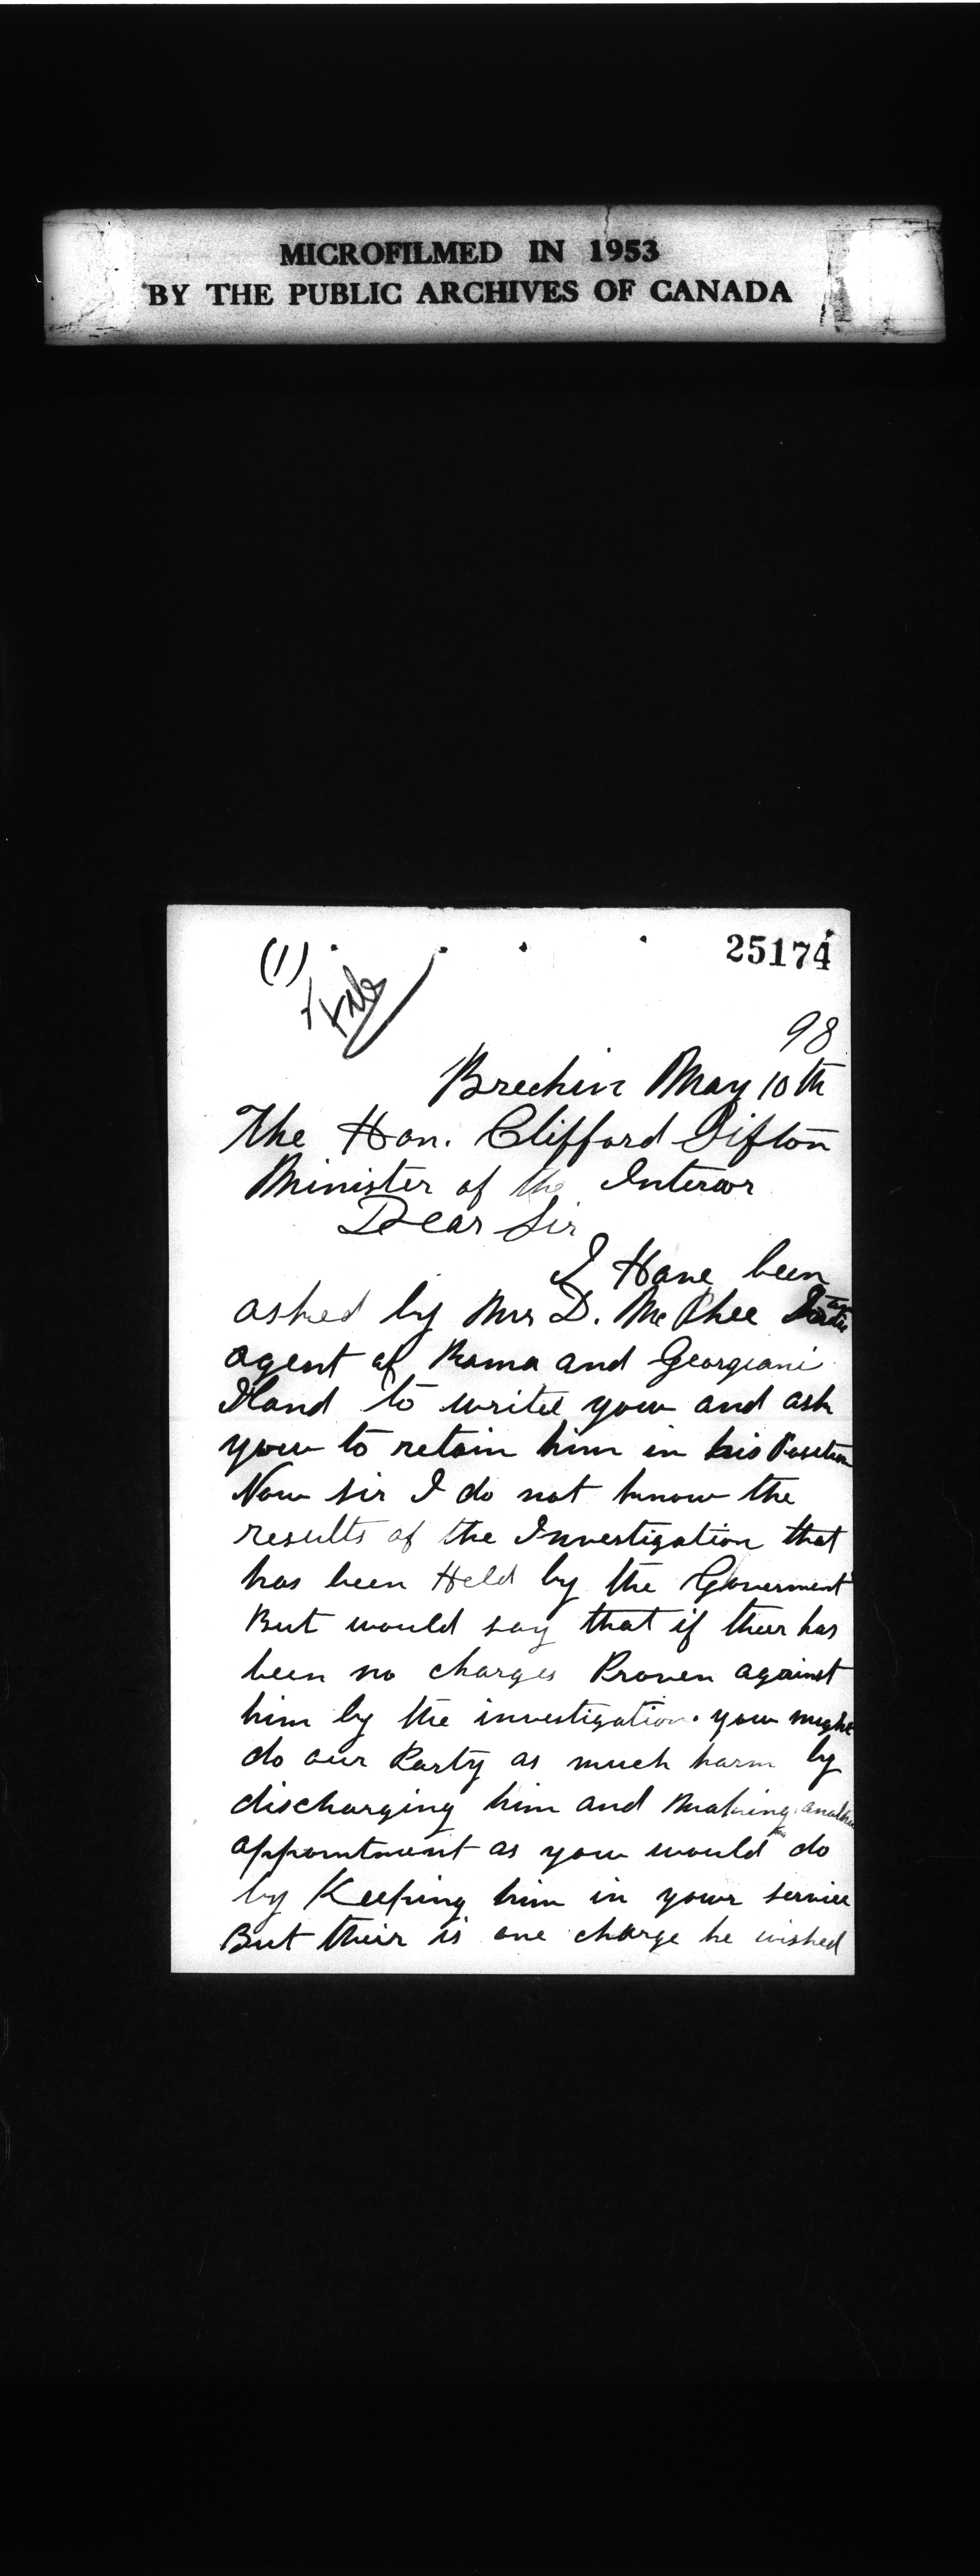 MICROFILMED IN 1953
BY THE PUBLIC ARCHIVES OF CANADA
(1)
25174
File
98
Brechin May 10th
The Hon. Clifford Sifton
Minister of the Interior
Dear Sir
I Have been
asked by Mr D. McPhee
agent of Rama and Georgiani
Iland to write you and ask
you to retain him in his Position
Now sir I do not know the
results of the Investigation that
has been Held by the Goverment
But would say that if their has
been no charges Proven against
him by the investigation. you might
do our Party as much harm by
discharging him and Making another
appointment as you would do
by Keeping him in your service
But their is one charge he wished